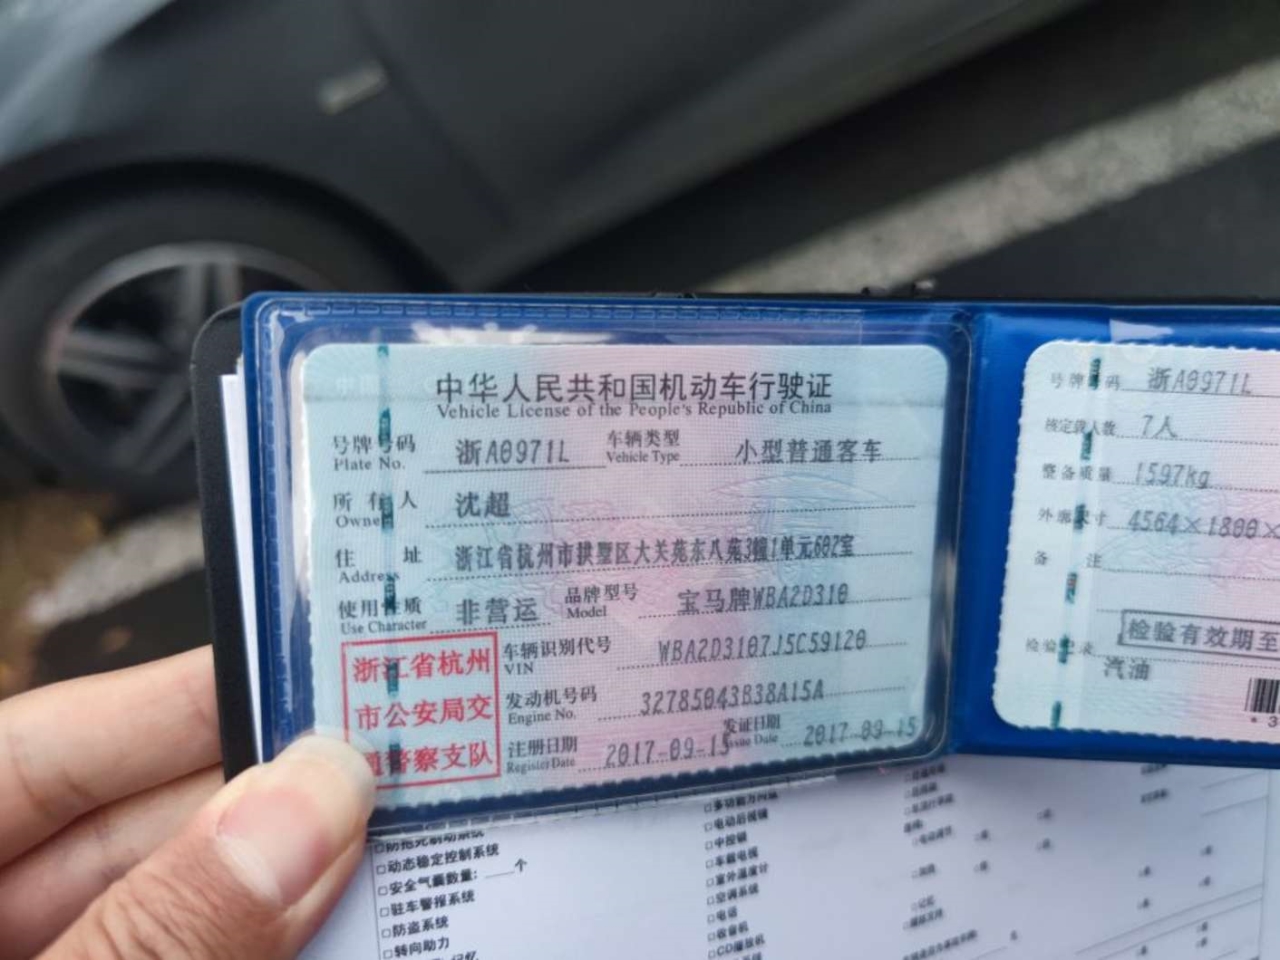 中华人民共和国机动车行驶证
Vehicle License of the People's Republic of China
号牌号码 浙A0971L 车辆类型 小型普通客车
Plate No. Vehicle Type
所有人 沈超
Owner
住址 浙江省杭州市拱墅区大关苑东八苑3幢1单元602室
Address
使用性质 非营运 品牌型号 宝马牌WBA2D310
Use Character Model
浙江省杭州
市公安局交
通警察支队
车辆识别代号 WBA2D3107J5C59120
VIN
发动机号码 32785043B38A15A
Engine No.
注册日期 2017-09-15 发证日期 2017-09-15
Register Date Issue Date
号牌号码 浙A0971L
核定载人数 7人
整备质量 1597kg
外廓尺寸 4564×1800×
备注
检验有效期至
检验记录
汽油
* 3
□动态稳定控制系统
□安全气囊数量:____个
□驻车警报系统
□防盗系统
□转向助力
□电动后视镜
□中控锁
□车载电视
□室外温度计
□空调系统
□电话
□收音机
□CD播放机